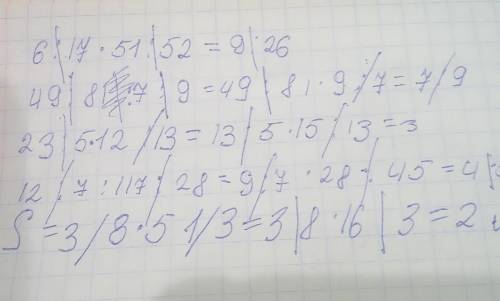 6/17 · 51/52 = 9/26
49/8 : 7/9 = 49/81 · 9/7 = 7/9
23/5·12/13 = 13/5·15/13=3
12/7 : 117/28 = 9/7 · 28/45 = 4/
S = 3/8·5 1/3 = 3/8·16/3 = 2